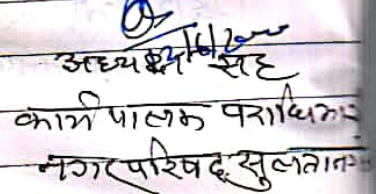 अध्यक्ष सह
कार्यपालक पदाधिकारी
नगर परिषद् सुलतान